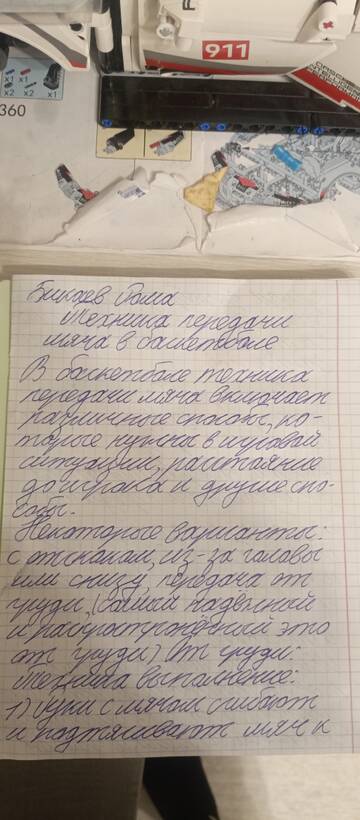 911
x1 x1
x2 x2 x1
360
Бикаев Рома
Техника передачи
мяча в баскетболе
В баскетболе техника
передачи мяча включает
различные способы, ко-
торые нужны в игровой
ситуации, расстояние
до игрока и другие спо-
собы.
Некоторые варианты:
с отскоком, из-за головы
или снизу, передача от
груди, (самый надёжный
и распространённый это
от груди) От груди:
Техника выполнение:
1) Руки с мячом сгибают
и подтягивают мяч к